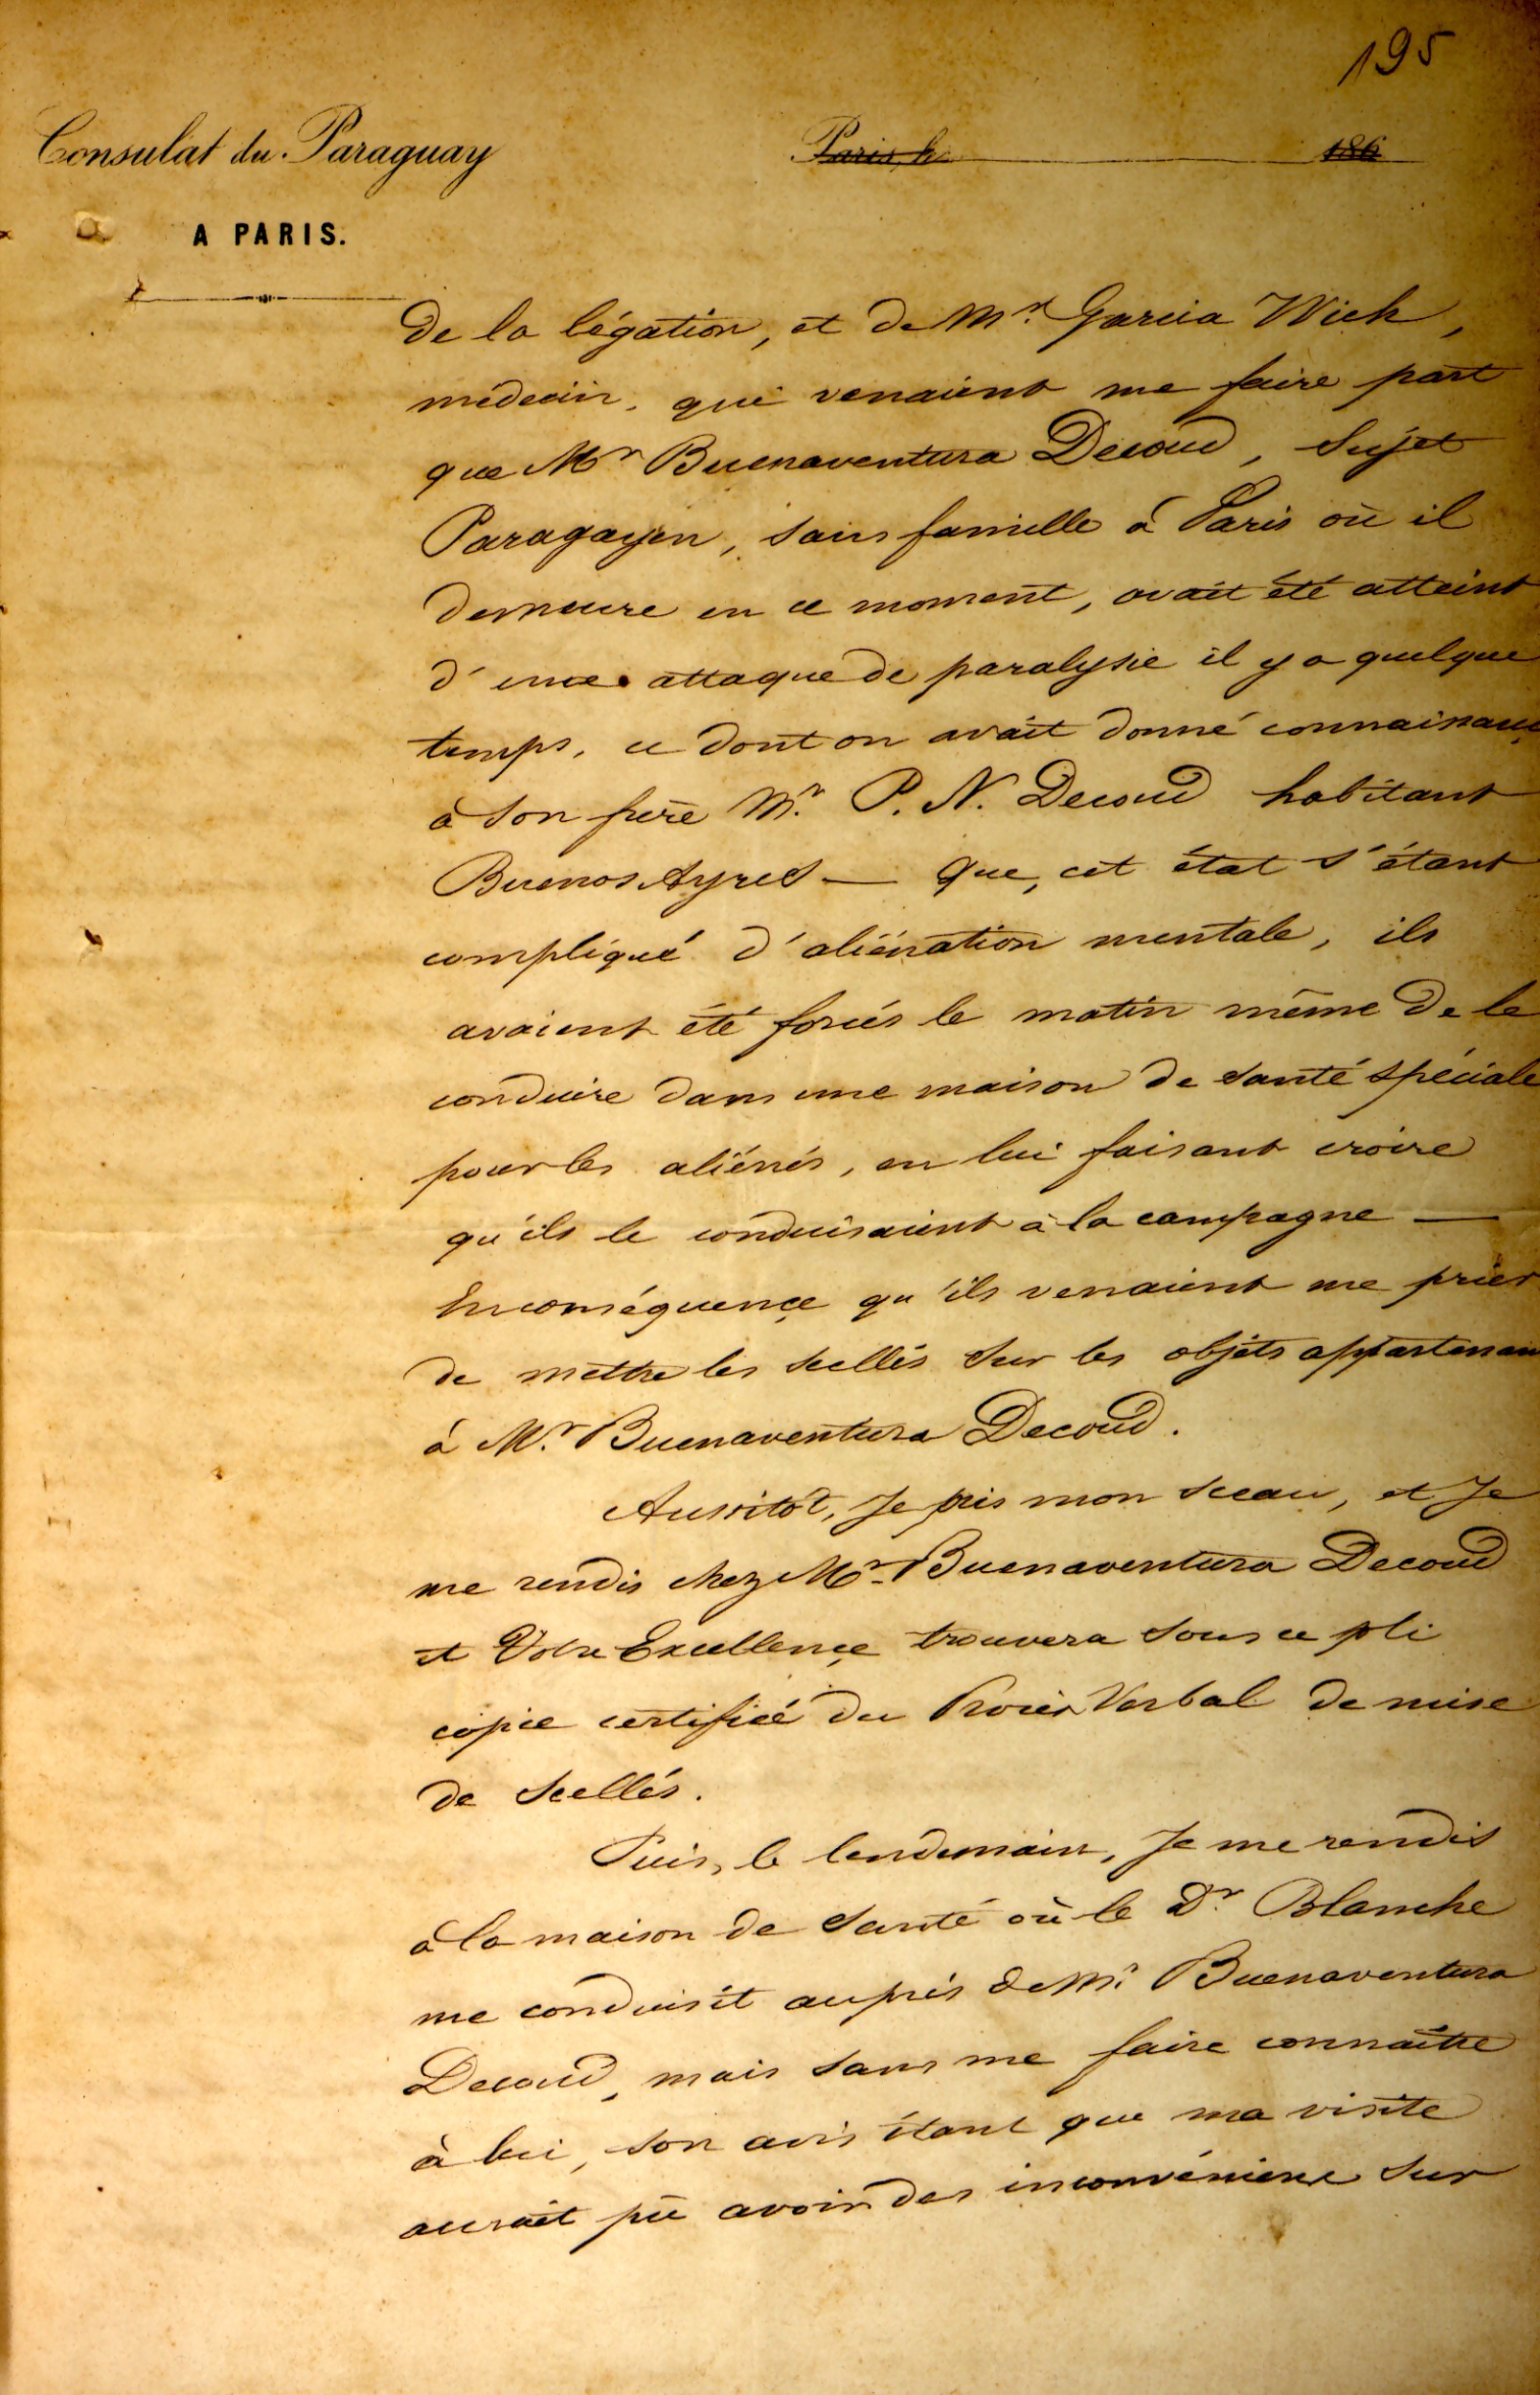 195
Consulat du Paraguay
Paris, le 186
A PARIS.
de la légation, et de Mr. Garcia Wich,
médecin, qui venaient me faire part
que Mr Buenaventura Decoud, Sujet
Paragayen, sans famille à Paris où il
demeure en ce moment, avait été atteint
d'une attaque de paralysie il y a quelque
temps, ce dont on avait donné connaissance
à son frère Mr. P. N. Decoud habitant
Buenos Ayres — Que, cet état s'étant
compliqué d'aliénation mentale, ils
avaient été forcés le matin même de le
conduire dans une maison de santé spéciale
pour les aliénés, en lui faisant croire
qu'ils le conduisaient à la campagne —
En conséquence qu'ils venaient me prier
de mettre les scellés sur les objets appartenan
à Mr. Buenaventura Decoud.
Aussitôt, Je pris mon sceau, et Je
me rendis chez Mr. Buenaventura Decoud
et Votre Excellence trouvera sous ce pli
copie certifiée du Procès Verbal de mise
de Scellés.
Puis, le lendemain, Je me rendis
à la maison de Santé où le Dr Blanche
me conduisit auprès de Mr. Buenaventura
Decoud, mais sans me faire connaître
à lui, son avis étant que ma visite
aurait pû avoir des inconvéniens sur